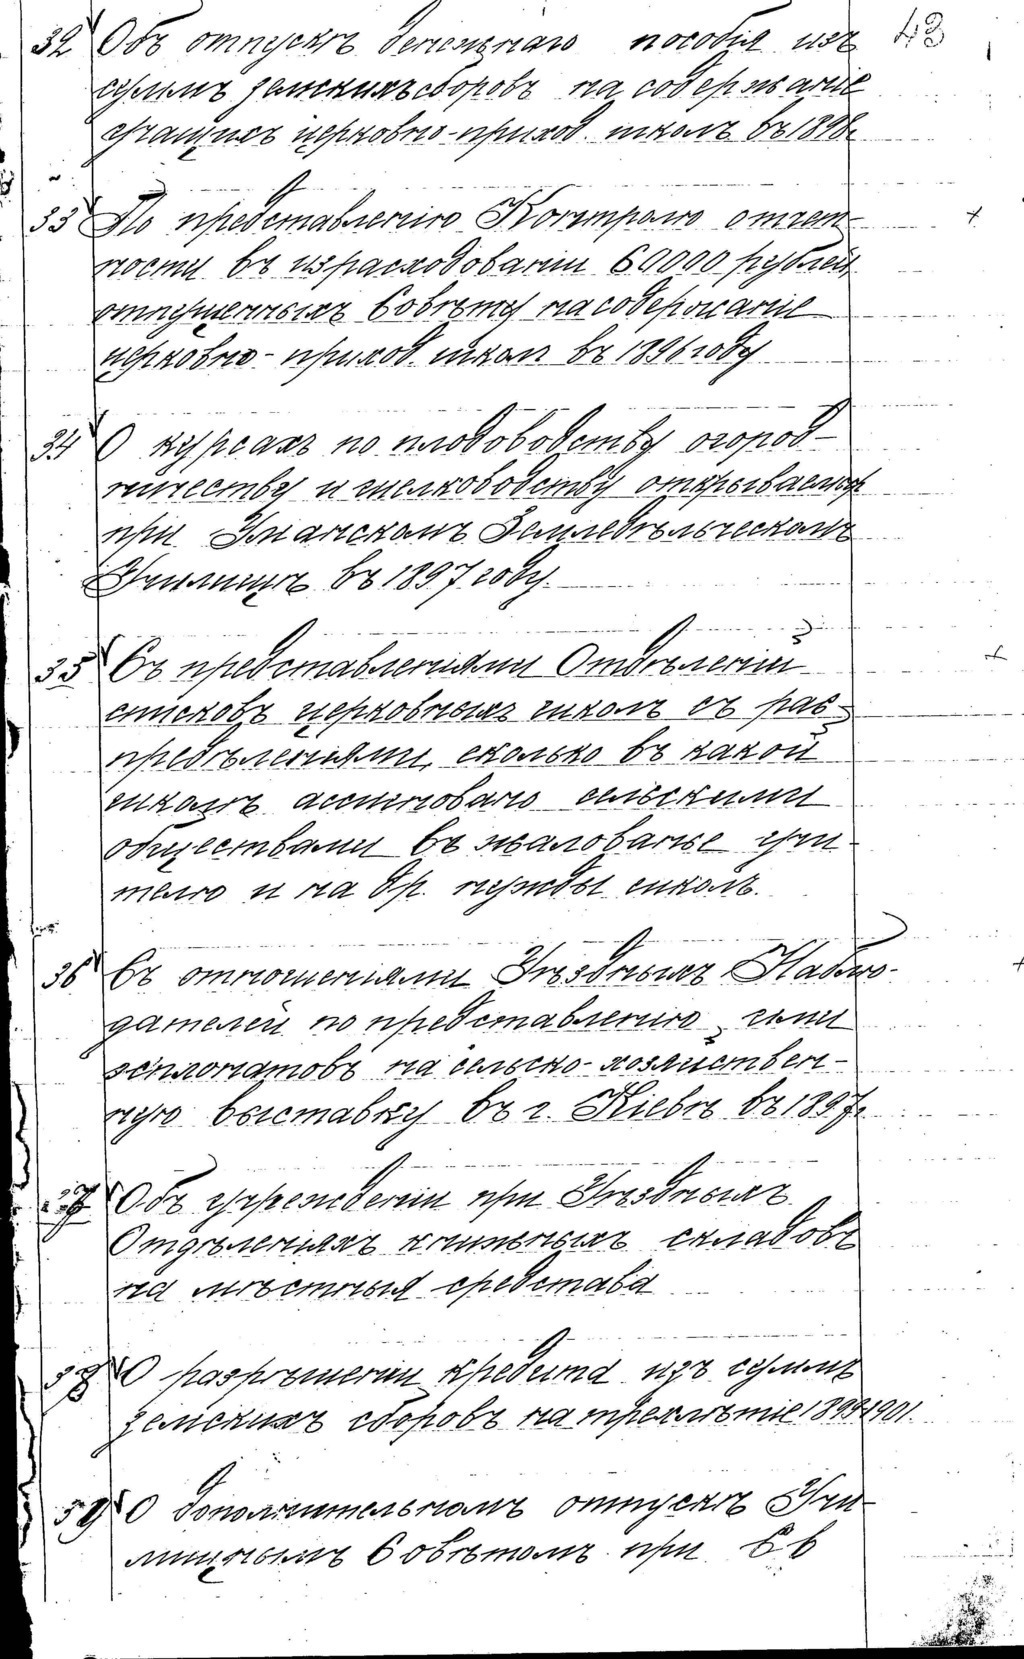 43
32 Объ отпускѣ денежнаго пособія изъ
суммъ земскихъ сборовъ на содержаніе
учащихъ церковно-приход. школъ въ 1898 г.
33 По представленію Контролю отчет-
ности въ израсходованіи 60000 рублей
отпущенныхъ Совѣту на содержаніе
церковно-приход. школъ въ 1896 году
34 О курсахъ по плодоводству огород-
ничеству и шелководству открываемыхъ
при Уманскомъ Земледѣльческомъ
Училищѣ въ 1897 году.
35 Съ представленіями Отдѣленій
списковъ церковныхъ школъ съ рас-
предѣленіями, сколько въ какой
школѣ ассигновано сельскими
обществами въ жалованье учи-
телю и на др. нужды школъ.
36 Съ отношеніями Уѣздныхъ Наблю-
дателей по представленію ими
эспонатовъ на сельско-хозяйствен-
ную выставку въ г. Кіевѣ въ 1897 г.
37 Объ учрежденіи при Уѣздныхъ
Отдѣленіяхъ книжныхъ складовъ
на мѣстныя средства
38 О разрѣшеніи кредита изъ суммъ
земскихъ сборовъ на трехлѣтіе 1899-1901.
39 О дополнительномъ отпускѣ Учи-
лищнымъ Совѣтомъ при Св